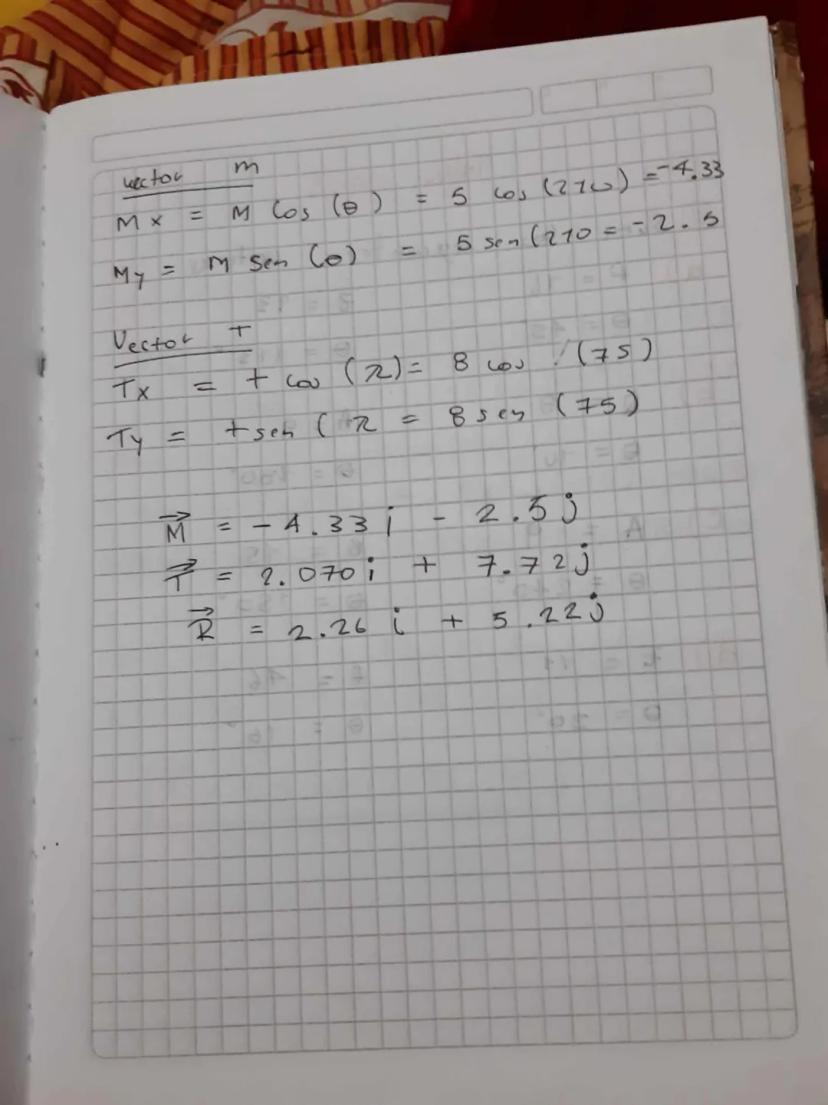 vector m
Mx = M Cos (θ) = 5 cos (210) = -4.33
My = m sen (θ) = 5 sen (210 = -2.5
Vector T
Tx = t cos (π) = 8 cos (75)
Ty = t sen ( π = 8 sen (75)
M = -4.33 i - 2.5 j
T = 2.070 i + 7.72 j
R = 2.26 i + 5.22 j